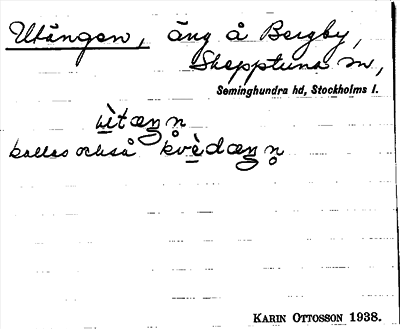 Utängen, äng å Bergby,
Skepptuna sn,
Seminghundra hd, Stockholms l.
ùtæŋn
kallas också kvèdæŋn̥
KARIN OTTOSSON 1938.